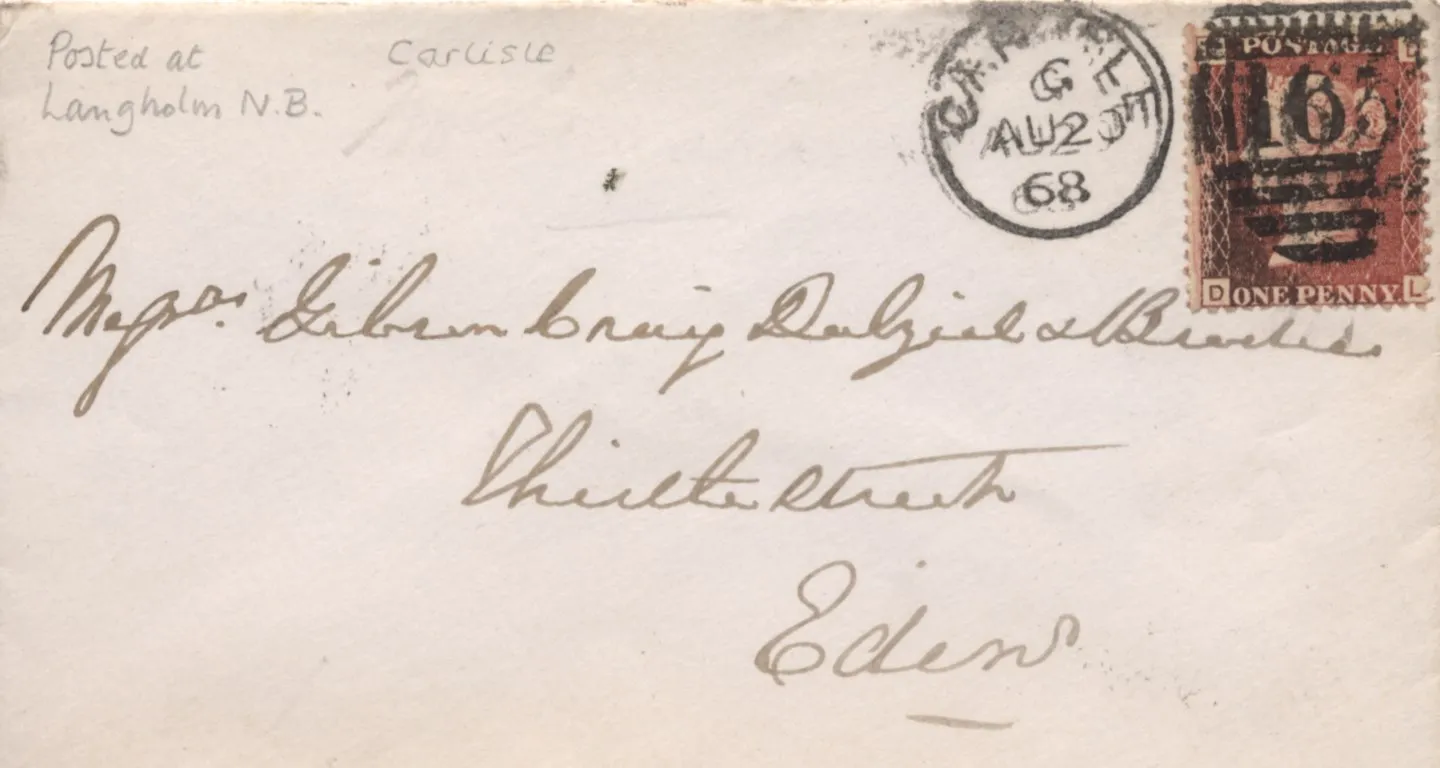 Posted at
Langholm N.B.
Carlisle
CARLISLE
G
AU 20
68
POSTAGE
165
D ONE PENNY L
Messrs. Gibson Craig Dalziel & Brodies
Thistle Street
Edinr